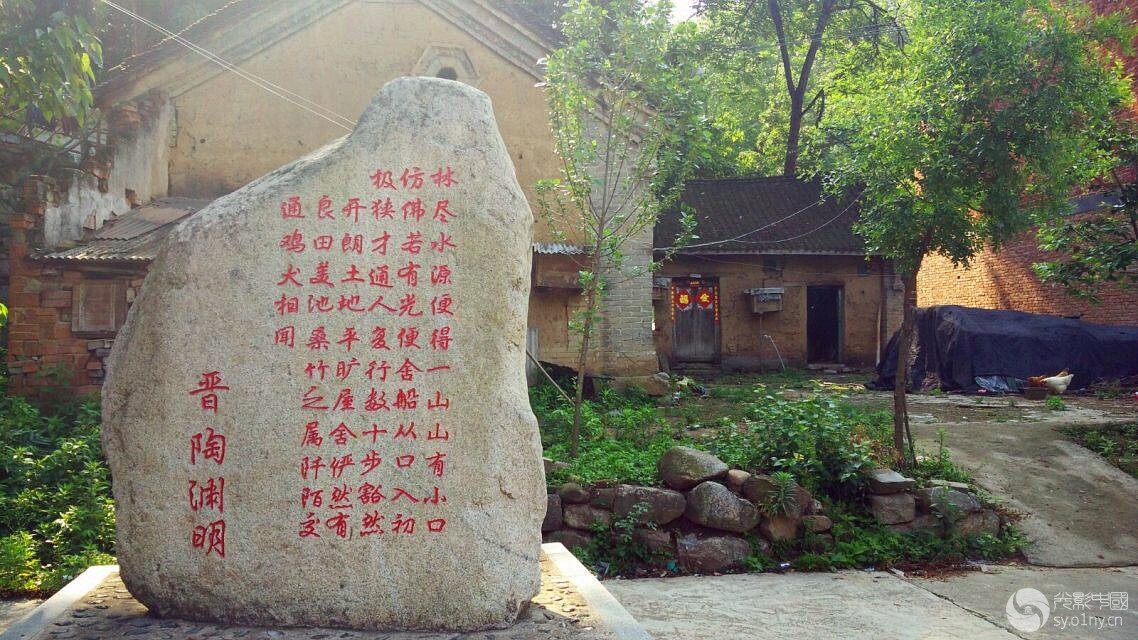 林尽水源便得一山山有小口
仿佛若有光便舍船从口入初
极狭才通人复行数十步豁然
开朗土地平旷屋舍俨然有
良田美池桑竹之属阡陌交
通鸡犬相闻
晋陶渊明
光影中國
sy.01ny.cn